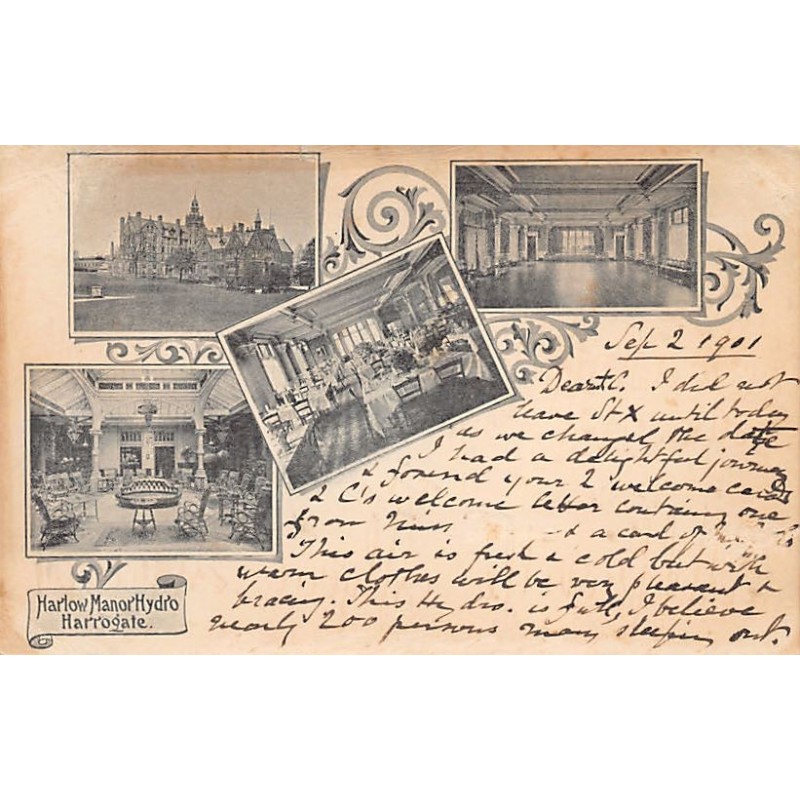 Sep 2 1901
Dear C. I did not
leave St X until today
as we changed the date
I had a delightful journey
& found your 2 welcome cards
& C's welcome letter containg one
from & a card of
This air is fresh & cold but with
warm clothes will be very pleasant &
bracing. This Hydro. is full, I believe
nearly 200 persons many sleeping out.
Harlow Manor Hydro
Harrogate.